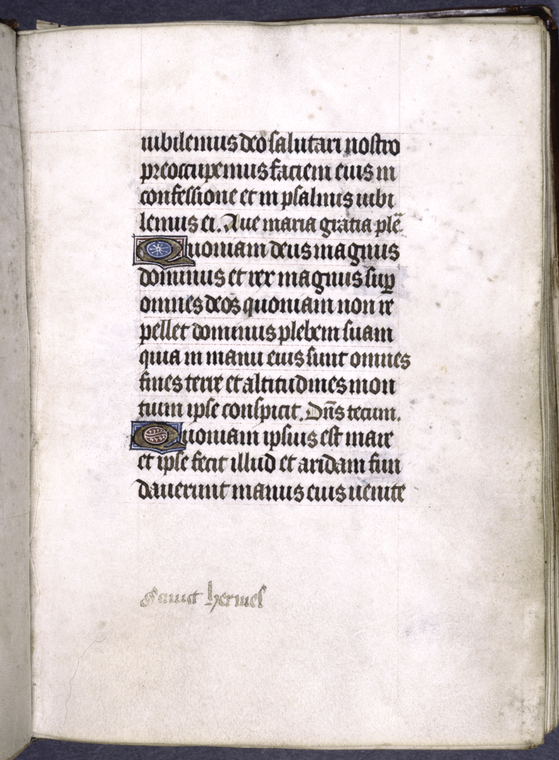 iubilemus deo salutari nostro
preoccupemus faciem eius in
confessione et in psalmis iubi
lemus ei. Aue maria gratia plē.
Quoniam deus magnus
dominus et rex magnus sup̱
omnes deos quoniam non re
pellet dominus plebem suam
quia in manu eius sunt omnes
fines terre et altitudines mon
tium ipse conspicit. Dn̄s tecum.
Quoniam ipsius est mare
et ipse fecit illud et aridam fun
dauerunt manus eius uenite
Sanct hermes